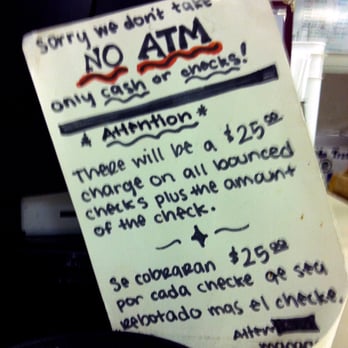 Sorry we don't take
NO ATM
only cash or checks!
* Attention *
There will be a $25.00
charge on all bounced
checks plus the amount
of the check.
Se cobraran $25.00
por cada checke qe sea
rebotado mas el checke.